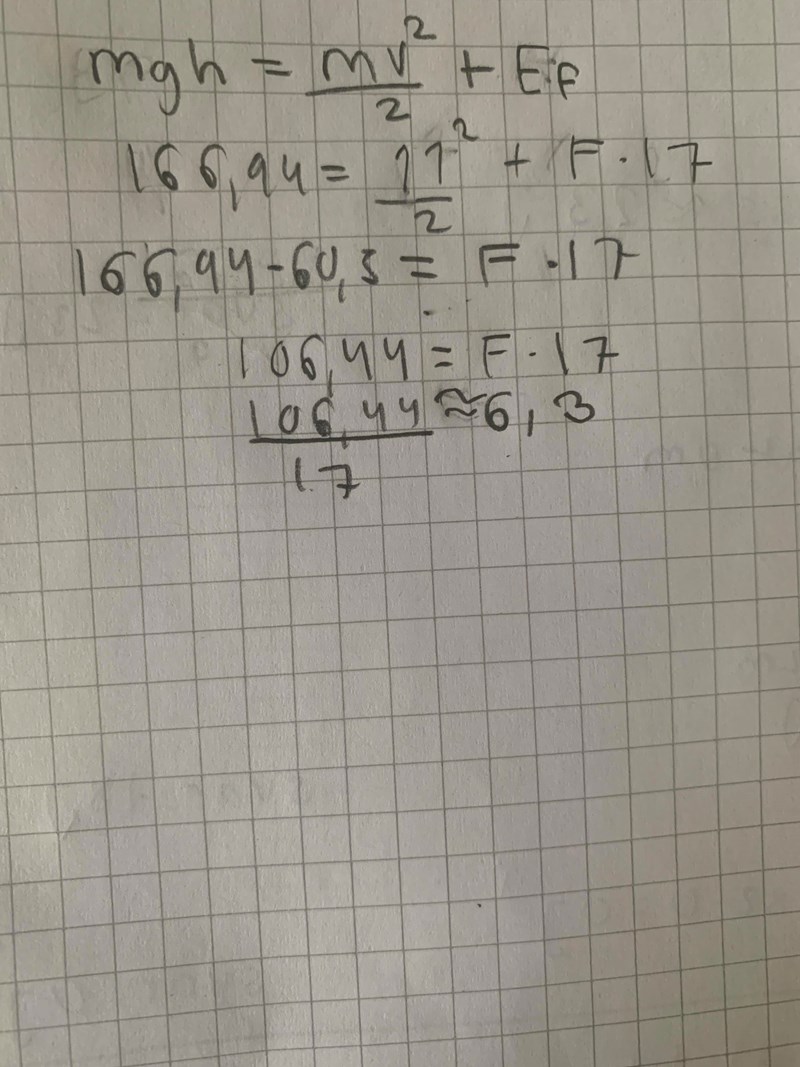 mgh = mv²/2 + EF
166,94 = 11²/2 + F·17
166,94-60,5 = F·17
106,44 = F·17
106,44/17 ≈ 6,3